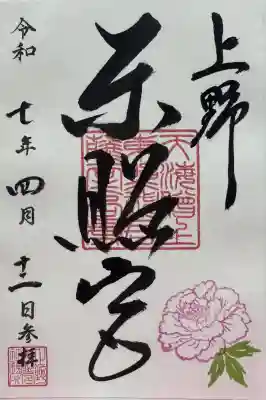 上野
東照宮
令和七年四月十二日参拝